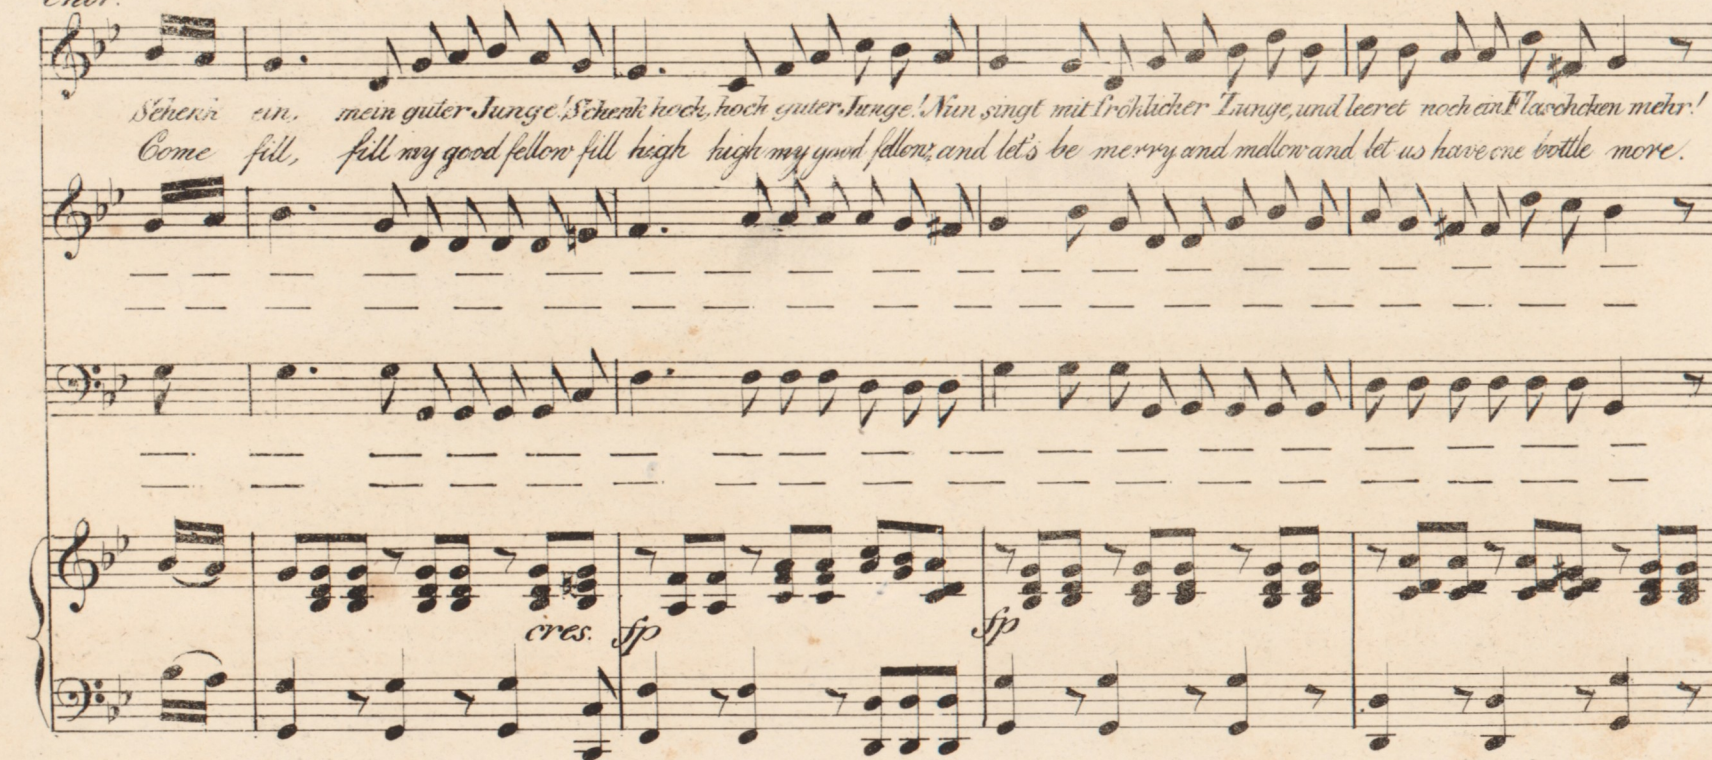 Chor.
Schenk ein, mein guter Junge! Schenk hoch, hoch guter Junge! Nun singt mit fröhlicher Zunge, und leeret noch ein Flaschchen mehr!
Come fill, fill my good fellow fill high high my good fellow, and let's be merry and mellow and let us have one bottle more.
cres. fp fp